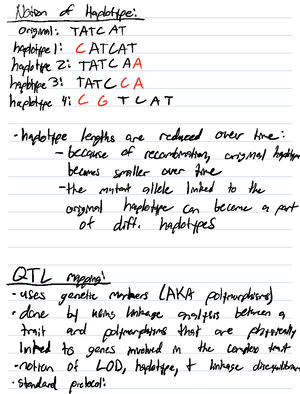 Notion of Haplotype:
original: TATCAT
haplotype 1: CATCAT
haplotype 2: TATCAA
haplotype 3: TATCCA
haplotype 4: CGTCAT
- haplotype lengths are reduced over time:
- because of recombination, original haplotype
becomes smaller over time
- the mutant allele linked to the
original haplotype can become a part
of diff. haplotypes
QTL mapping:
• uses genetic markers (AKA polymorphisms)
• done by using linkage analysis between a
trait and polymorphisms that are physically
linked to genes involved in the complex trait
• notion of LOD, haplotype, + linkage disequilibrium
• standard protocol: